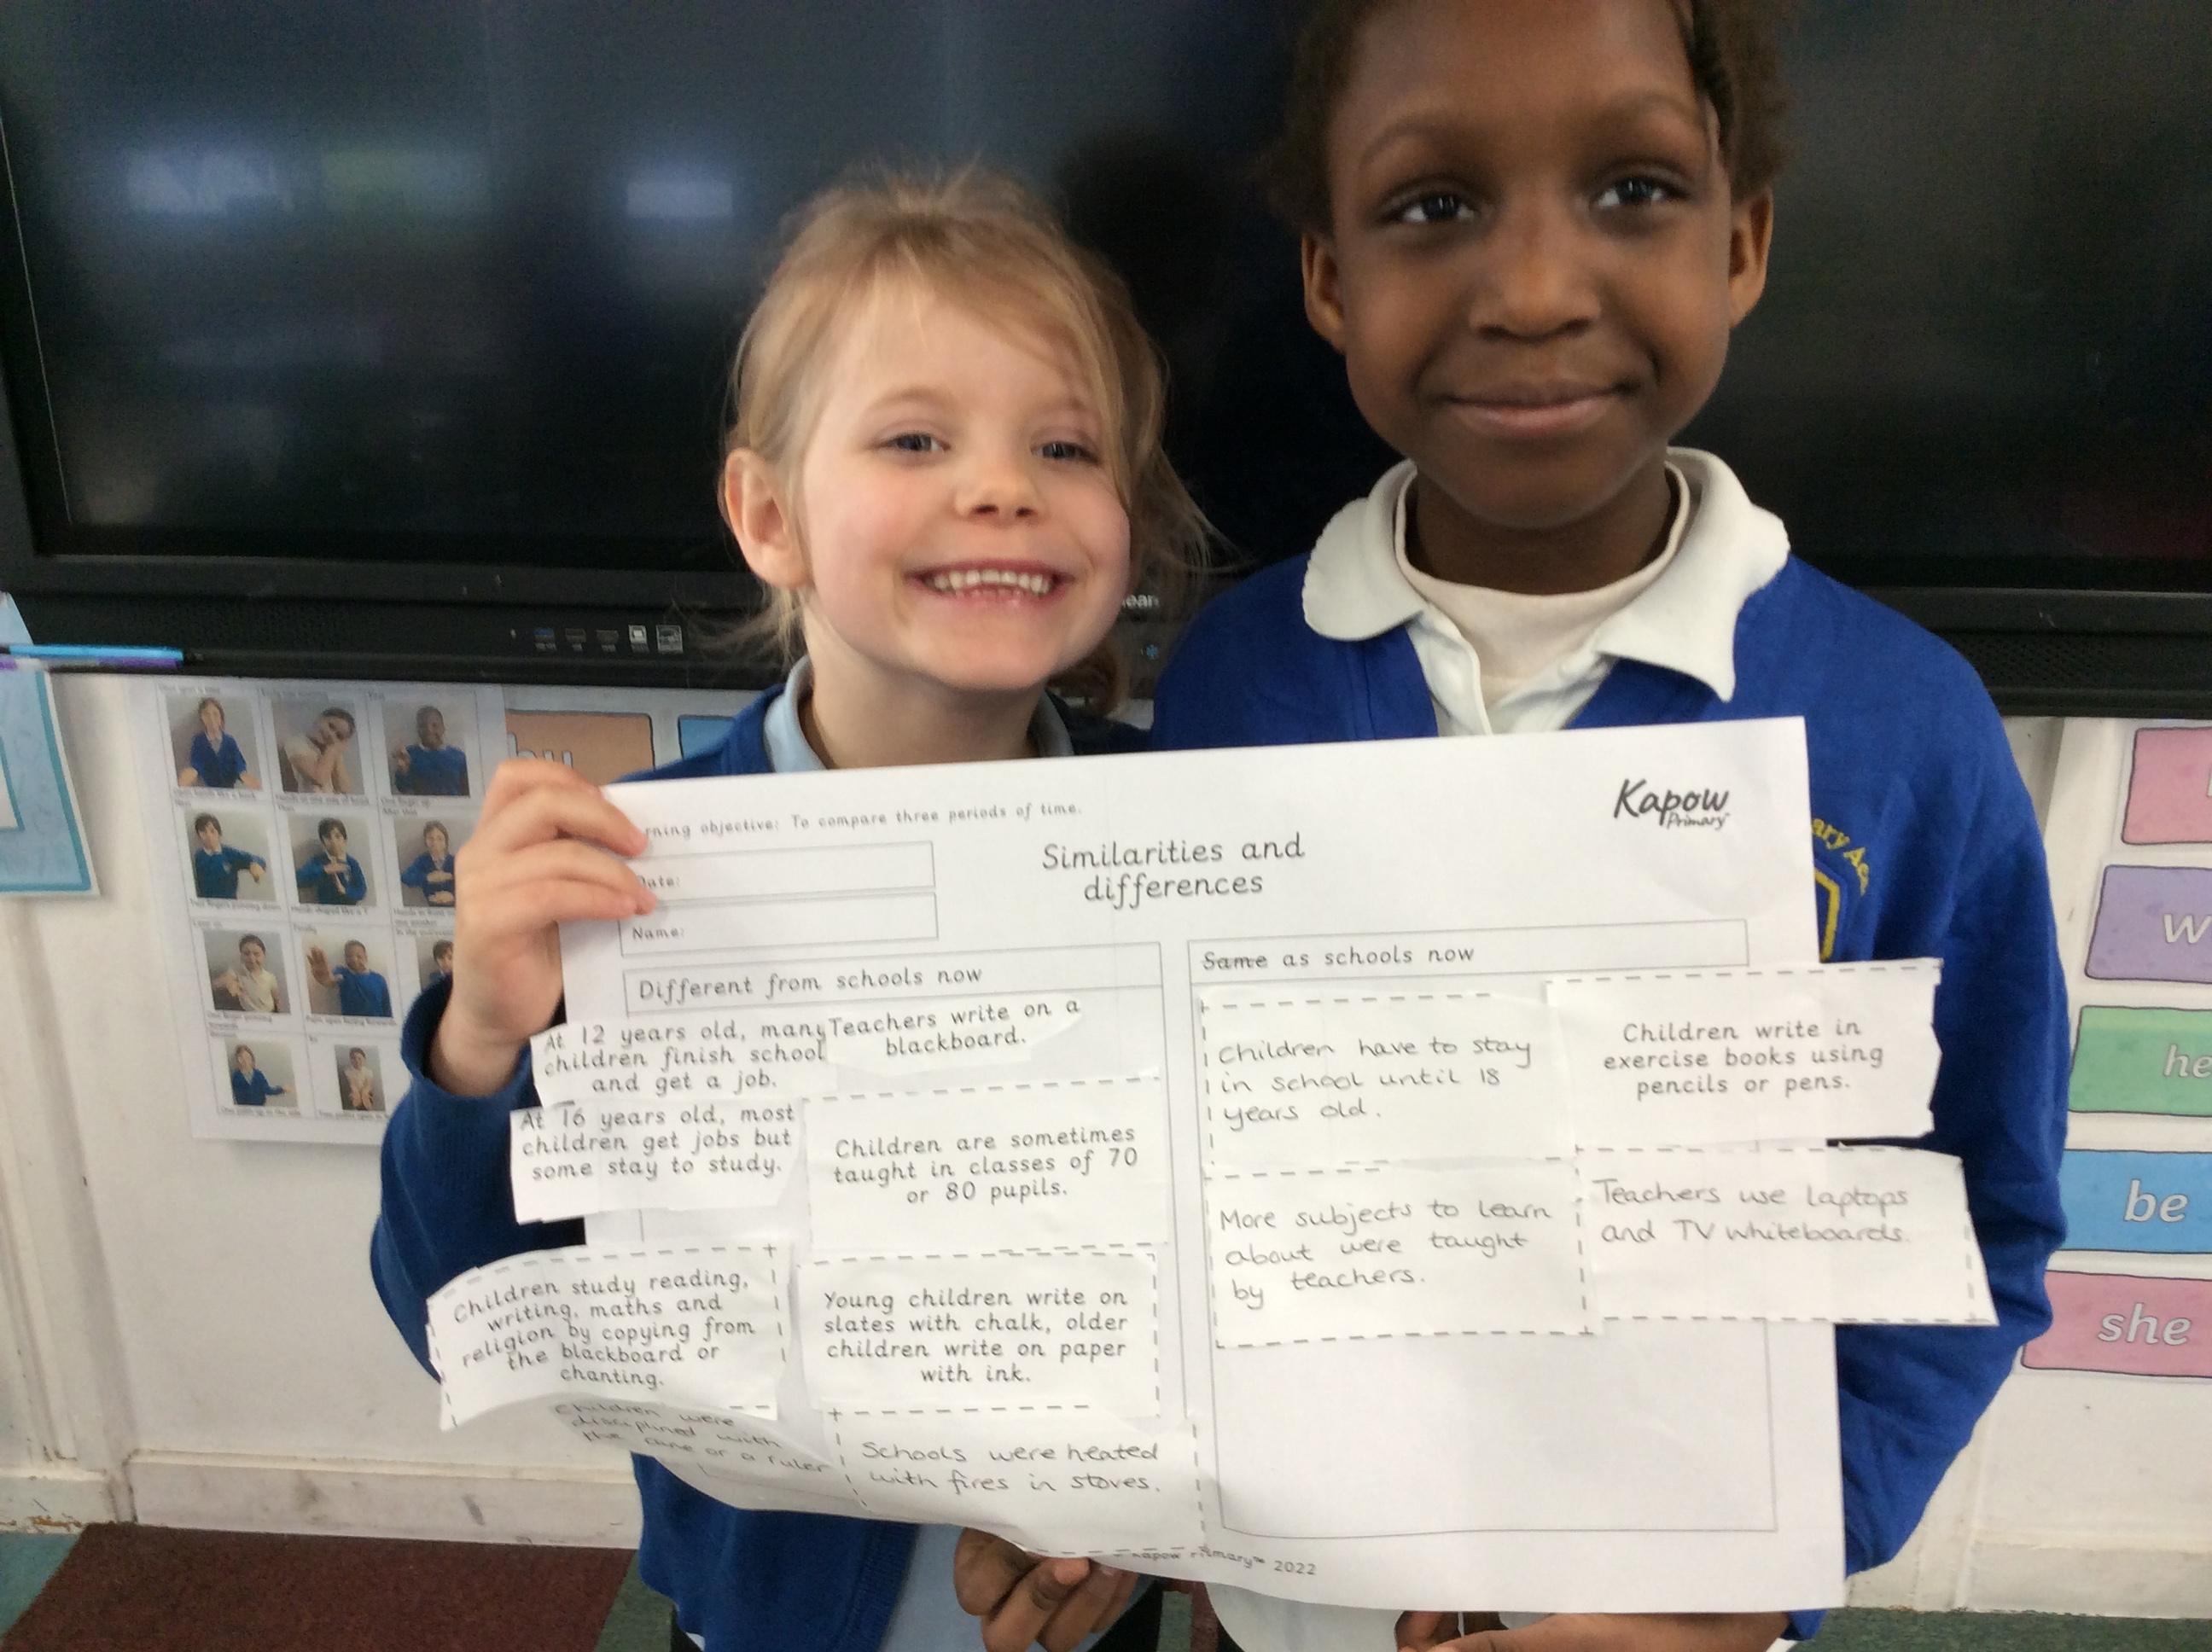 Kapow
Primary
rning objective: To compare three periods of time.
Similarities and
differences
Date:
Name:
Different from schools now
At 12 years old, many
children finish school
and get a job.
Teachers write on a
blackboard.
At 16 years old, most
children get jobs but
some stay to study.
Children are sometimes
taught in classes of 70
or 80 pupils.
Children study reading,
writing, maths and
religion by copying from
the blackboard or
chanting.
Young children write on
slates with chalk, older
children write on paper
with ink.
Children were
disciplined with
the cane or a ruler
Schools were heated
with fires in stoves.
Same as schools now
Children have to stay
in school until 18
years old.
Children write in
exercise books using
pencils or pens.
More subjects to learn
about were taught
by teachers.
Teachers use laptops
and TV whiteboards.
Kapow Primary™ 2022
ary Aca
w
he
be
she